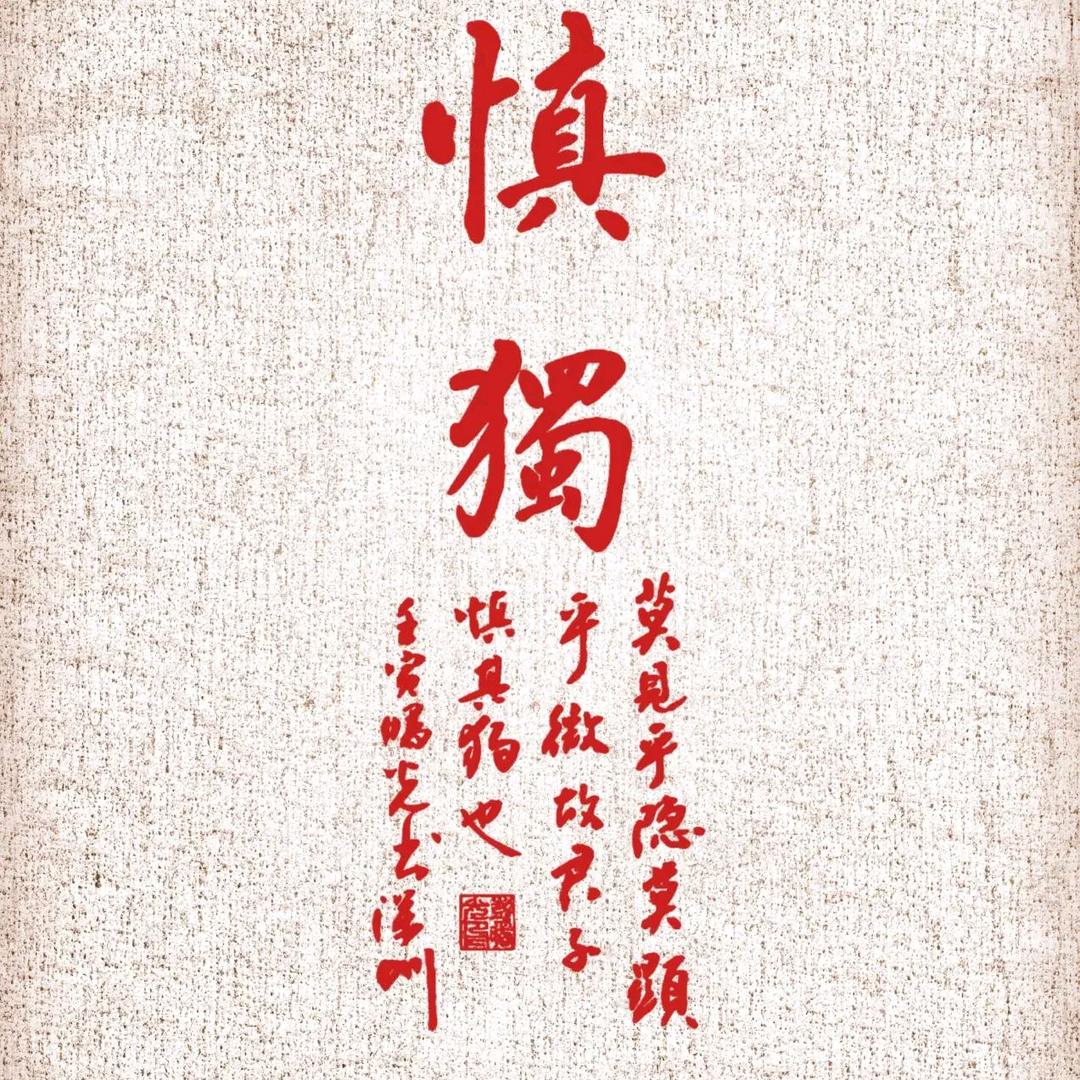 慎獨
莫見乎隐莫顯
乎微故君子
慎其独也
壬寅曙光书深圳